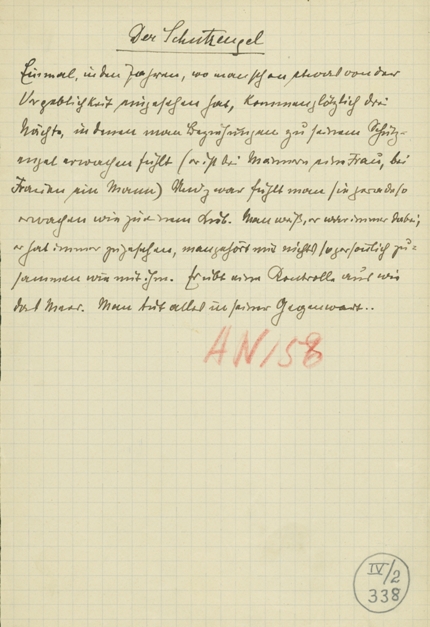 Der Schutzengel
Einmal, in den Jahren, wo man schon etwas von der
Vergeblichkeit eingesehen hat, kommen plötzlich die
Nächte, in denen man Beziehungen zu seinem Schutz-
engel erwachen fühlt (er ist bei Männern eine Frau, bei
Frauen ein Mann) Und zwar fühlt man sie geradeso
erwachen wie zu einem Lieb. Man weiß, er war immer dabei,
er hat immer zugesehen, man gehört mit nichts so persönlich zu-
sammen wie mit ihm. Er übt eine Kontrolle aus wie
das Meer. Man tut alles in seiner Gegenwart..
AN/58
IV/2
338